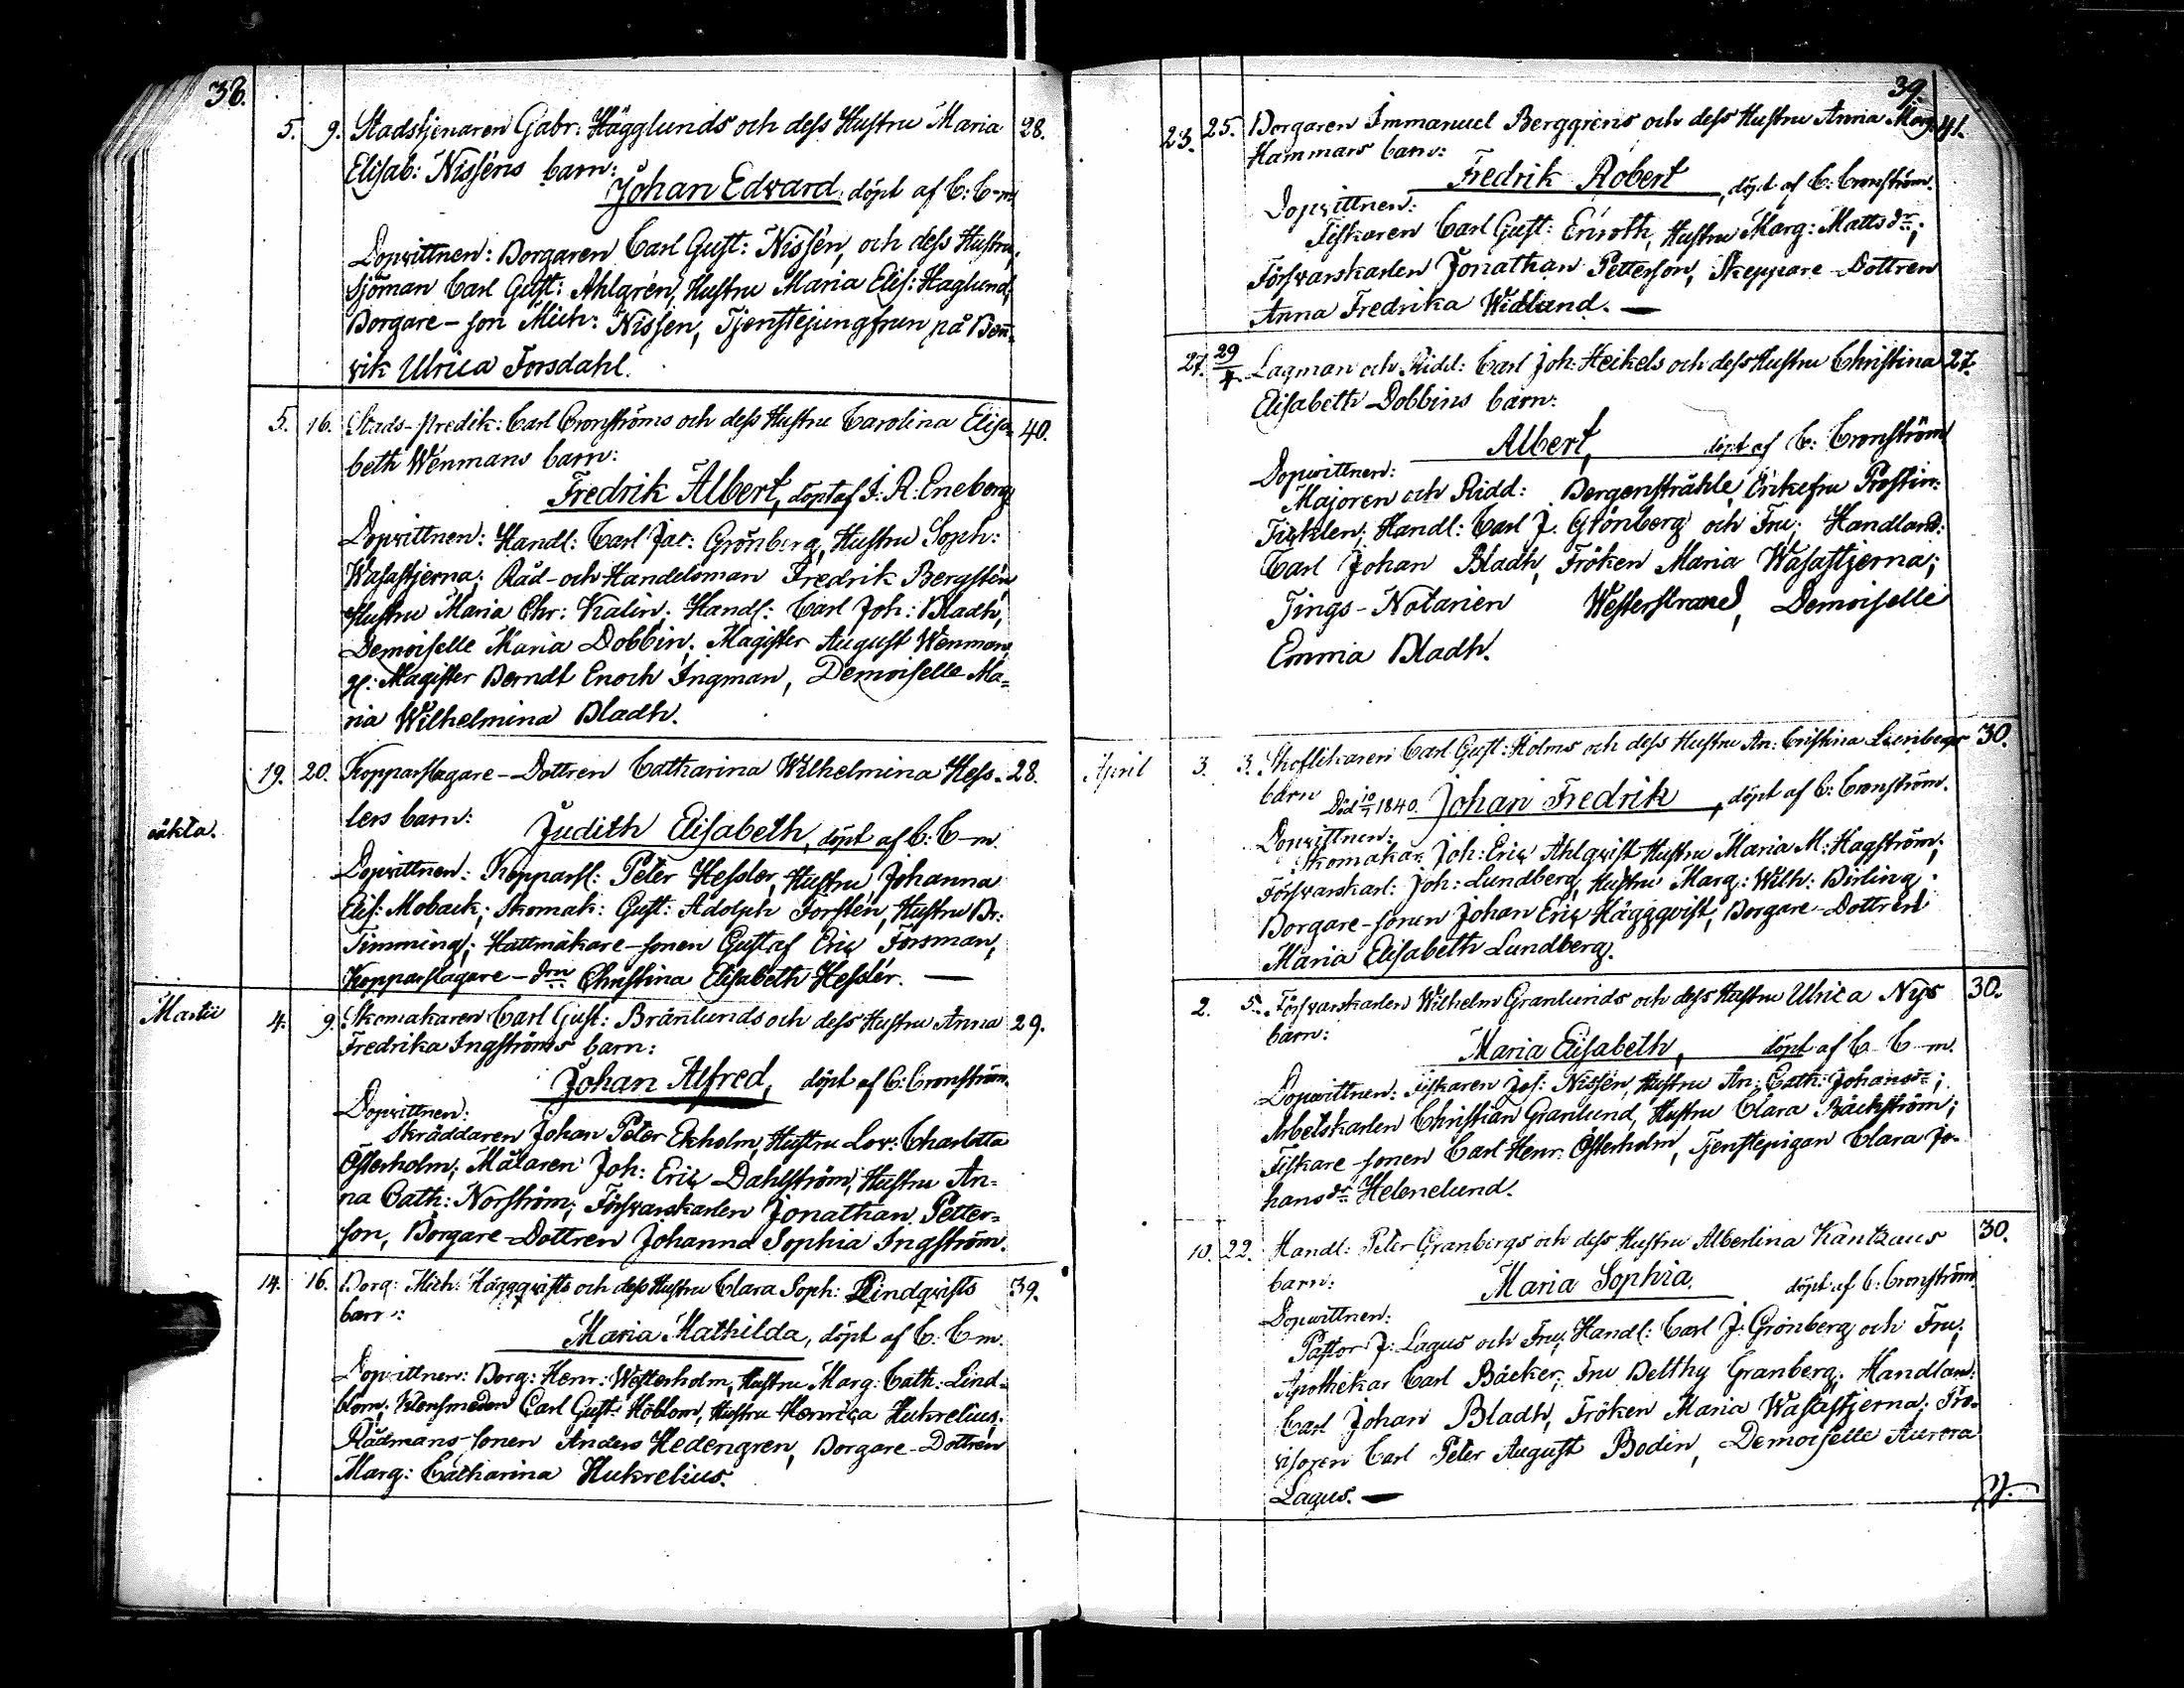 38.
5. 9. Stadstjenaren Gabr: Hägglunds och dess Hustru Maria 28.
Elisab: Nisséns barn:
Johan Edvard, döpt af C: C-m
Dopvittnen: Borgaren Carl Gust: Nissén, och dess Hustru,
Sjöman Carl Gust: Ahlgrén, Hustru Maria Elis: Haglund,
Borgare-son Mich: Nissen, Tjenstejungfrun på Benn-
vik Ulrica Forsdahl.
5. 16. Stads-predik: Carl Cronströms och dess Hustru Carolina Elisa- 40.
beth Wénmans barn:
Fredrik Albert, döpt af J: R: Eneberg
Dopvittnen: Handl: Carl Jac: Grönberg, Hustru Soph:
Wasastjerna; Råd- och Handelsman Fredrik Bergstén
Hustru Maria Chr: Kalin; Handl: Carl Joh: Bladh,
Demoiselle Maria Dobbin; Magister August Wenman,
Magister Berndt Enoch Ingman, Demoiselle Ma=
ria Wilhelmina Bladh.
19. 20. Kopparslagare-Dottren Catharina Wilhelmina Hess- 28.
lers barn:
oäkta.
Judith Elisabeth, döpt af C: C-m.
Dopvittnen: Kopparsl: Peter Hessler, Hustru Johanna
Elis: Moback; Skomak: Gust: Adolph Forstén, Hustru Br:
Timming; Hattmakare-sonen Gustaf Eric Forsman,
Kopparslagare-drn Christina Elisabeth Hesslér.
Martii 4. 9. Skomakaren Carl Gust: Brännlunds och dess Hustru Anna 29.
Fredrika Ingströms barn:
Johan Alfred, döpt af C: Cronström.
Dopvittnen:
Skräddaren Johan Peter Ekholm, Hustru Lov: Charlotta
Österholm; Målaren Joh: Eric Dahlström, Hustru An-
na Cath: Norström; Försvarskarlen Jonathan Petter=
son, Borgare-Dottren Johanna Sophia Ingström.
14. 16. Borg: Mich: Häggqvists och dess Hustru Clara Soph: Lindqvists 39.
barn:
Maria Mathilda, döpt af C: C m.
Dopvittnen: Borg: Henr: Westerholm, Hustru Marg: Cath: Lind-
blom; Klensmeden Carl Gust: Höblom, Hustru Henrica Hukrelius;
Rådmans-sonen Anders Hedengren, Borgare-Dottren
Marg: Catharina Hukrelius.
39.
23. 25. Borgaren Immanuel Berggréns och dess Hustru Anna Marg: 41.
Hammars barn:
Fredrik Robert, döpt af C: Cronström.
Dopvittnen:
Fiskaren Carl Gust: Enroth, Hustru Marg: Mattsdr;
Försvarskarlen Jonathan Petterson, Skeppare-Dottren
Anna Fredrika Widlund.
27. 29/4. Lagman och Ridd: Carl Joh: Heikels och dess Hustru Christina 27.
Elisabeth Dobbins barn:
Albert, döpt af C: Cronström
Dopvittnen:
Majoren och Ridd: Bergenstråhle, Enkefru Prostin:
Handl: Carl J. Grönberg och Fru; Handland:
Carl Johan Bladh, Fröken Maria Wasastjerna;
Tings-Notarien Westerstrand, Demoiselle
Emma Bladh.
April 3. 3. Skoflikaren Carl Gust: Holms och dess Hustru An: Cristina Leenbergs 30.
barn Död 10/7 1840. Johan Fredrik, döpt af C: Cronström.
Dopvittnen:
Skomakar. Joh: Eric Ahlqvist Hustru Maria M: Hagström;
Försvarskarl: Joh: Lundberg, Hustru Marg: Wilh: Birling;
Borgare-sonen Johan Eric Häggqvist, Borgare-Dottren
Maria Elisabeth Lundberg.
2. 5. Försvarskarlen Wilhelm Granlunds och dess Hustru Ulrica Nys 30.
barn:
Maria Elisabeth, döpt af C C-m.
Dopvittnen: Fiskaren Jos: Nissén, Hustru An: Cath: Johansdr;
Arbetskarlen Christian Granlund, Hustru Clara Bäckström;
Fiskare-sonen Carl Henr: Österholm, Tjenstepigan Clara Jo-
hansdr Helenelund.
10. 22. Handl: Peter Granbergs och dess Hustru Albertina Kantzaus 30.
barn:
Maria Sophia. döpt af C: Cronström
Dopvittnen:
Pastor J: Lagus och Fru; Handl: Carl J: Grönberg och Fru;
Apothekar Carl Bäcker; Fru Delthy Granberg; Handland:
Carl Johan Bladh, Fröken Maria Wasastjerna; Pro-
visoren Carl Peter August Bodin, Demoiselle Aurora
Lagus.